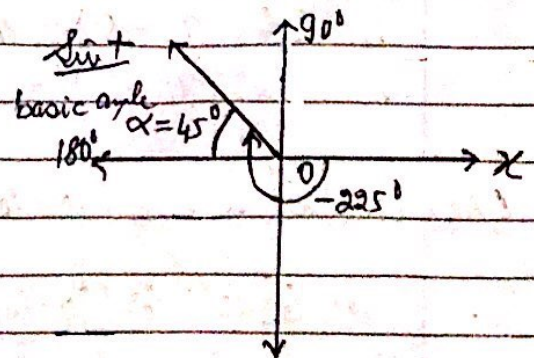 90⁰
Sin +
basic angle
α=45⁰
180⁰
0
x
-225⁰